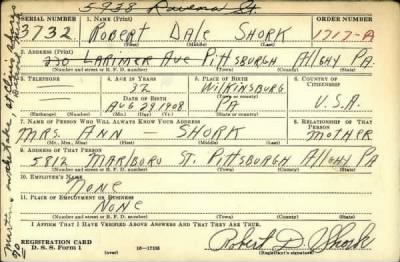 5938 Ravenna St.
SERIAL NUMBER 1. NAME (Print) ORDER NUMBER
3732 ROBERT DALE SHORK 1717-A
(First) (Middle) (Last)
2. ADDRESS (Print)
LARIMER AVE PITTSBURGH ALLGHY PA.
(Number and street or R. F. D. number) (Town) (County) (State)
3. TELEPHONE 4. AGE IN YEARS 5. PLACE OF BIRTH 6. COUNTRY OF CITIZENSHIP
— 32 WILKINSBURG
DATE OF BIRTH (Town or county)
— AUG 29 1908 PA U.S.A.
(Exchange) (Number) (Mo.) (Day) (Yr.) (State or country)
7. NAME OF PERSON WHO WILL ALWAYS KNOW YOUR ADDRESS 8. RELATIONSHIP OF THAT PERSON
MRS. ANN — SHORK MOTHER
(Mr., Mrs., Miss) (First) (Middle) (Last)
9. ADDRESS OF THAT PERSON
5812 MARLBORO ST. PITTSBURGH ALLGHY PA
(Number and street or R. F. D. number) (Town) (County) (State)
10. EMPLOYER'S NAME
NONE
11. PLACE OF EMPLOYMENT OR BUSINESS
NONE
(Number and street or R. F. D. number) (Town) (County) (State)
I AFFIRM THAT I HAVE VERIFIED ABOVE ANSWERS AND THAT THEY ARE TRUE.
REGISTRATION CARD
D. S. S. Form 1 (over) 16—17105
Robert D. Shork
(Registrant's signature)